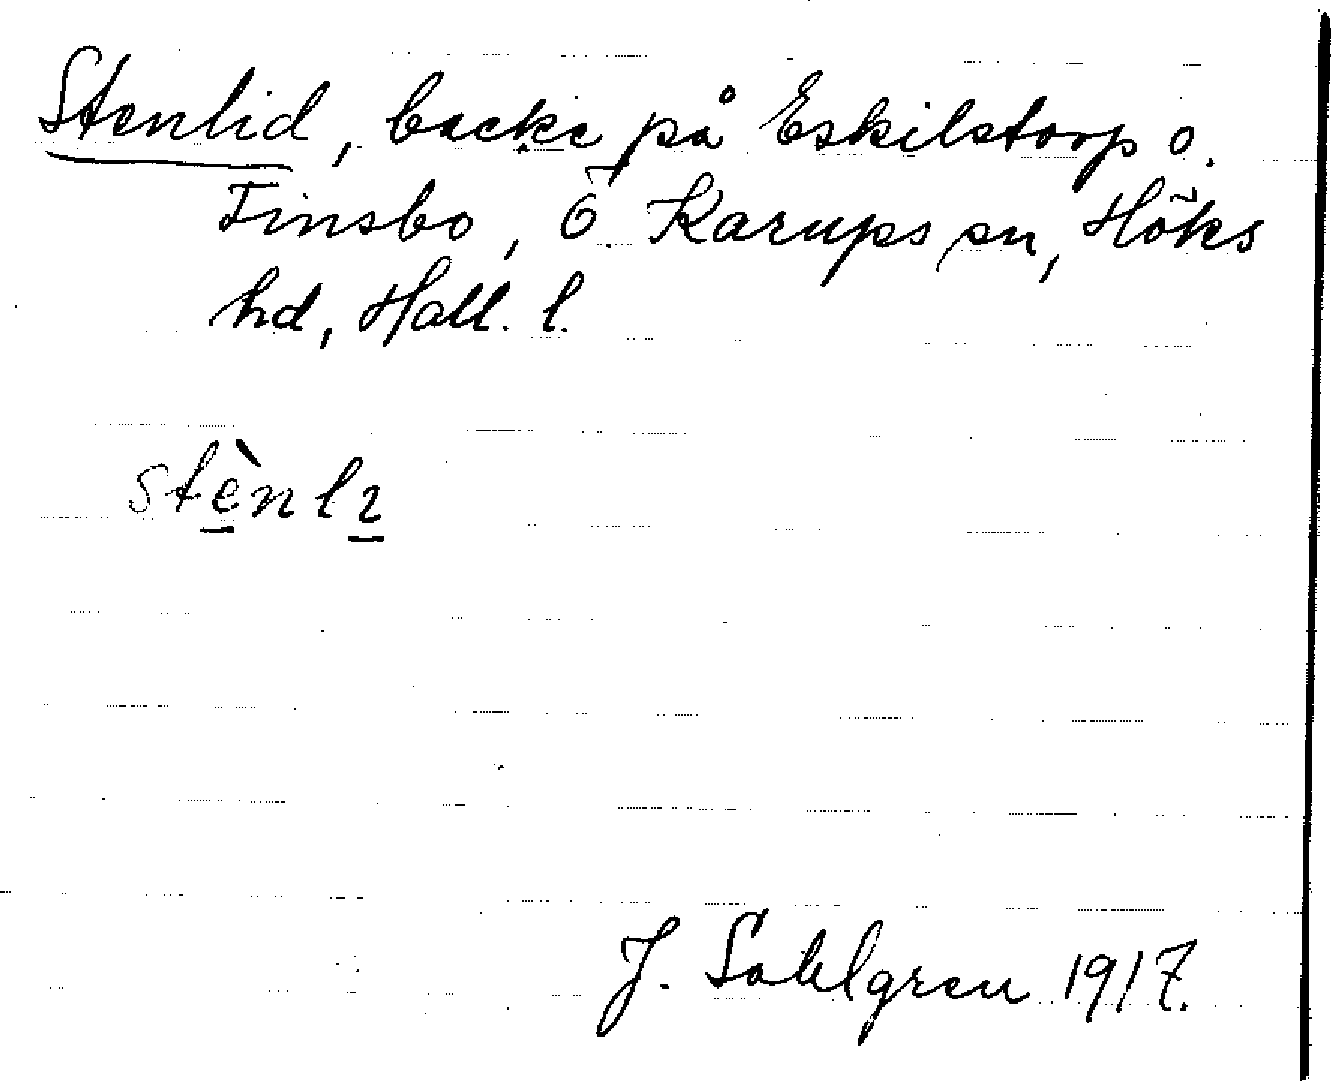 Stenlid, backe på Eskilstorp o.
Finsbo, Ö. Karups sn, Höks
hd, Hall. l.
stènlı
J. Sahlgren 1917.